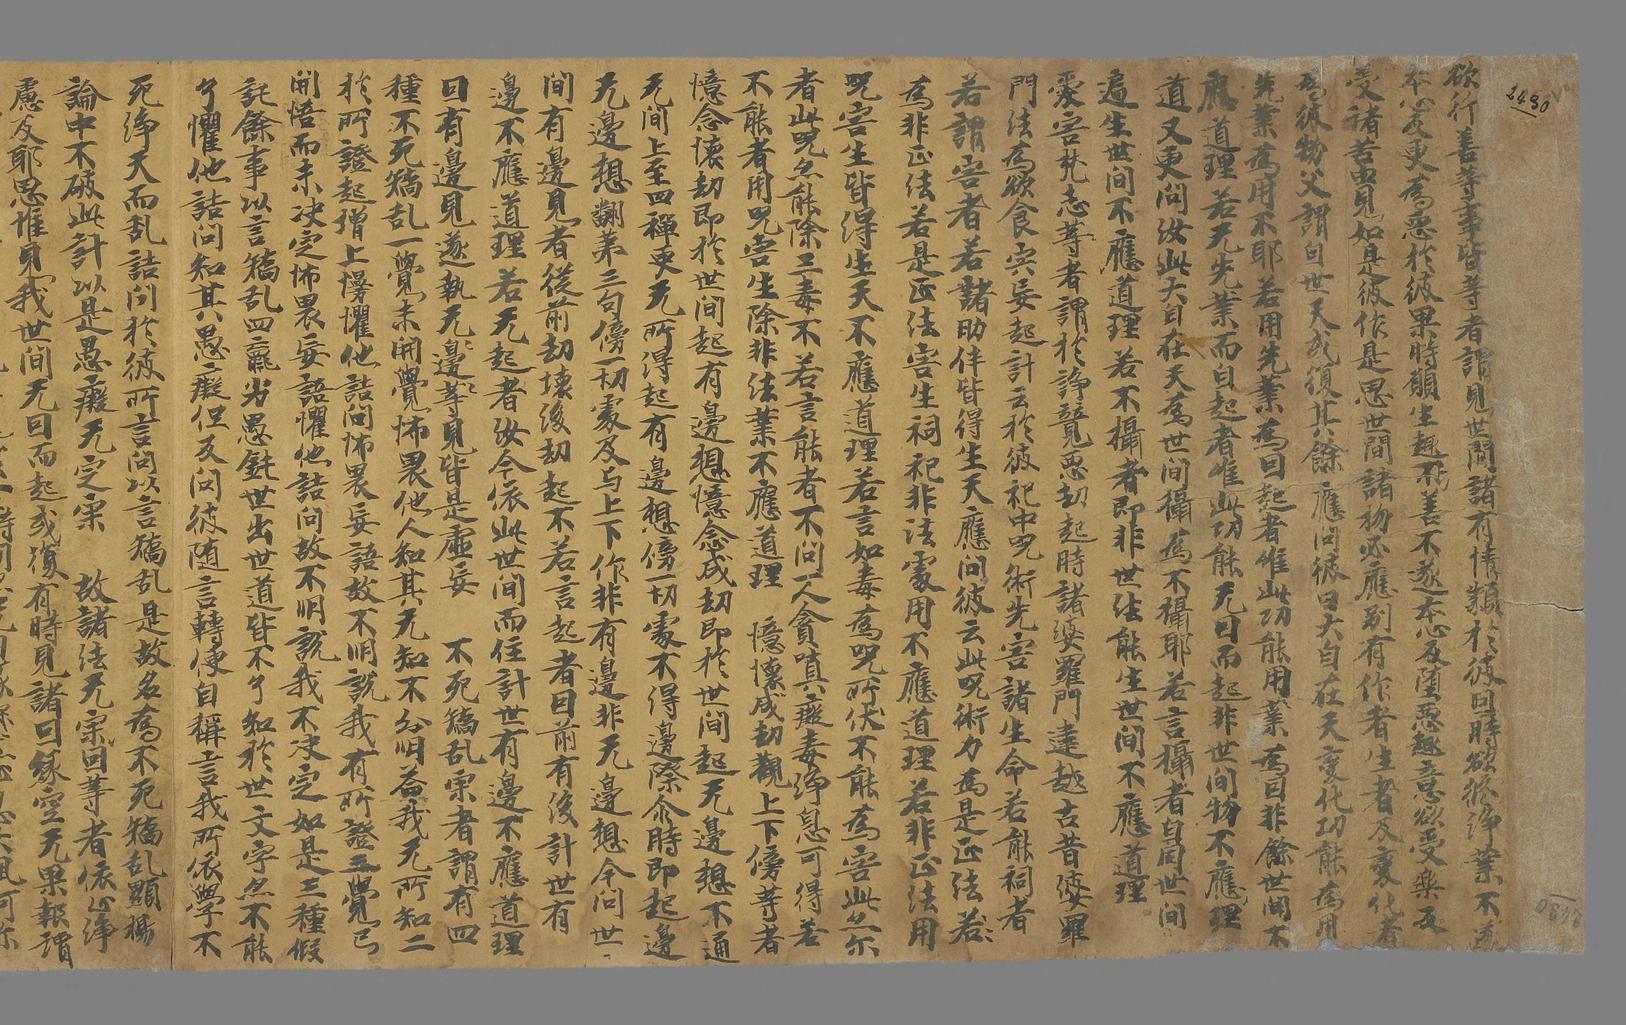 2430
欲行善等事皆等者謂見世間諸有情類於彼因時欲修淨業不遂
本心返更為惡於彼果時願生趣善不遂本心反墮惡趣意欲受樂反
受諸苦由見如是彼作是思世間諸物必應別有作者生者及變化者
為彼物父謂自世天或復其餘應問彼曰大自在天變化功能為用
先業為用不耶若用先業為因起者唯此功能用業為因非餘世間不
應道理若无先業而自起者唯此功能无因而起非世間物不應理
道又更問汝此大自在天為世間攝為不攝耶若言攝者自同世間
遍生世間不應道理若不攝者即非世法能生世間不應道理
處害梵志等者謂於諍競惡劫起時諸婆羅門違越古昔婆羅
門法為欲食宍妄起計云於彼祀中呪術先害諸生命若能祠者
若謂害者若諸助伴皆得生天應問彼云此呪術力為是正法若
為非正法若是正法害生祠祀非法處用不應道理若非正法用
呪害生皆得生天不應道理若言如毒為呪所伏不能為害此亦尒
者此呪亦能除三毒不若言能者不問一人貪嗔癡毒淨息可得若
不能者用呪害生除非法業不應道理　憶懷成劫觀上下傍等者
憶念懷劫即於世間起有邊想憶念成劫即於世間起无邊想不通
无間上至四禪更无所得起有邊想傍一切處不得邊際尒時即起邊
无邊想翻第三句傍一切處及与上下作非有邊非无邊想今問世
間有邊見者從前劫壞後劫起不若言起者因前有後計世有
邊不應道理若无起者汝今依此世間而住計世有邊不應道理
因有邊見遂執无邊等見皆是虛妄　不死矯乱宗者謂有四
種不死矯乱一覺未開覺怖畏他人知其无知不分明荅我无所知二
於所證起增上慢懼他詰問怖畏妄語故不明說我有所證三覺已
開悟而未决定怖畏妄語懼他詰問故不明說我不决定如是三種假
託餘事以言矯乱四羸劣愚鈍世出世道皆不了知於世文字亦不能
了懼他詰問知其愚癡但反問彼随言轉便自稱言我所依學不
死淨天而乱詰問於彼所言問以言矯乱是故名為不死矯乱顯揚
論中不破此計以是愚癡无定宗　故諸法无宗因等者依止淨
慮及耶思惟見我世間无因而起或復有時見諸因緣空无果報謂